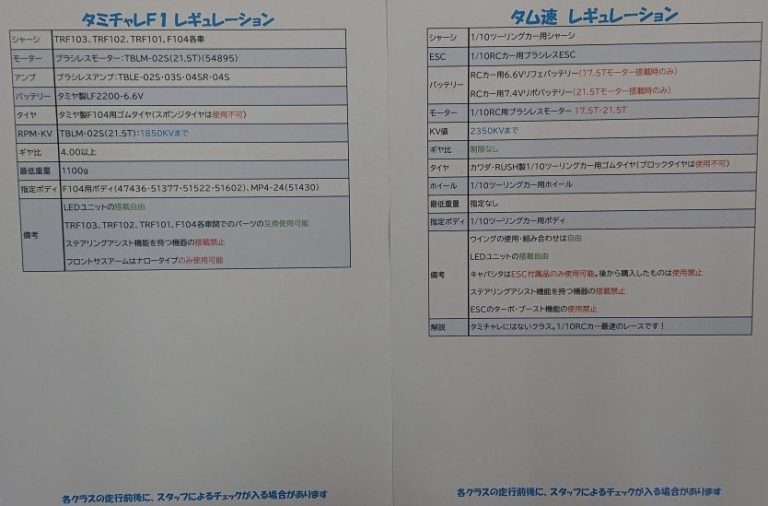 タミチャレF1 レギュレーション
シャーシ TRF103、TRF102、TRF101、F104各車
モーター ブラシレスモーター:TBLM-02S(21.5T)(54895)
アンプ ブラシレスアンプ:TBLE-02S・03S・04SR・04S
バッテリー タミヤ製LF2200-6.6V
タイヤ タミヤ製F104用ゴムタイヤ(スポンジタイヤは使用不可)
RPM・KV TBLM-02S(21.5T):1850KVまで
ギヤ比 4.00以上
最低重量 1100g
指定ボディ F104用ボディ(47436・51377・51522・51602)、MP4-24(51430)
備考
LEDユニットの搭載自由
TRF103、TRF102、TRF101、F104各車間でのパーツの互換使用可能
ステアリングアシスト機能を持つ機器の搭載禁止
フロントサスアームはナロータイプのみ使用可能
各クラスの走行前後に、スタッフによるチェックが入る場合があります
タム速 レギュレーション
シャーシ 1/10ツーリングカー用シャーシ
ESC 1/10RCカー用ブラシレスESC
バッテリー
RCカー用6.6Vリフェバッテリー(17.5Tモーター搭載時のみ)
RCカー用7.4Vリポバッテリー(21.5Tモーター搭載時のみ)
モーター 1/10RC用ブラシレスモーター 17.5T・21.5T
KV値 2350KVまで
ギヤ比 制限なし
タイヤ カワダ・RUSH製1/10ツーリングカー用ゴムタイヤ(ブロックタイヤは使用不可)
ホイール 1/10ツーリングカー用ホイール
最低重量 指定なし
指定ボディ 1/10ツーリングカー用ボディ
備考
ウイングの使用・組み合わせは自由
LEDユニットの搭載自由
キャパシタはESC付属品のみ使用可能。後から購入したものは使用禁止
ステアリングアシスト機能を持つ機器の搭載禁止
ESCのターボ・ブースト機能の使用禁止
解説 タミチャレにはないクラス。1/10RCカー最速のレースです!
各クラスの走行前後に、スタッフによるチェックが入る場合があります